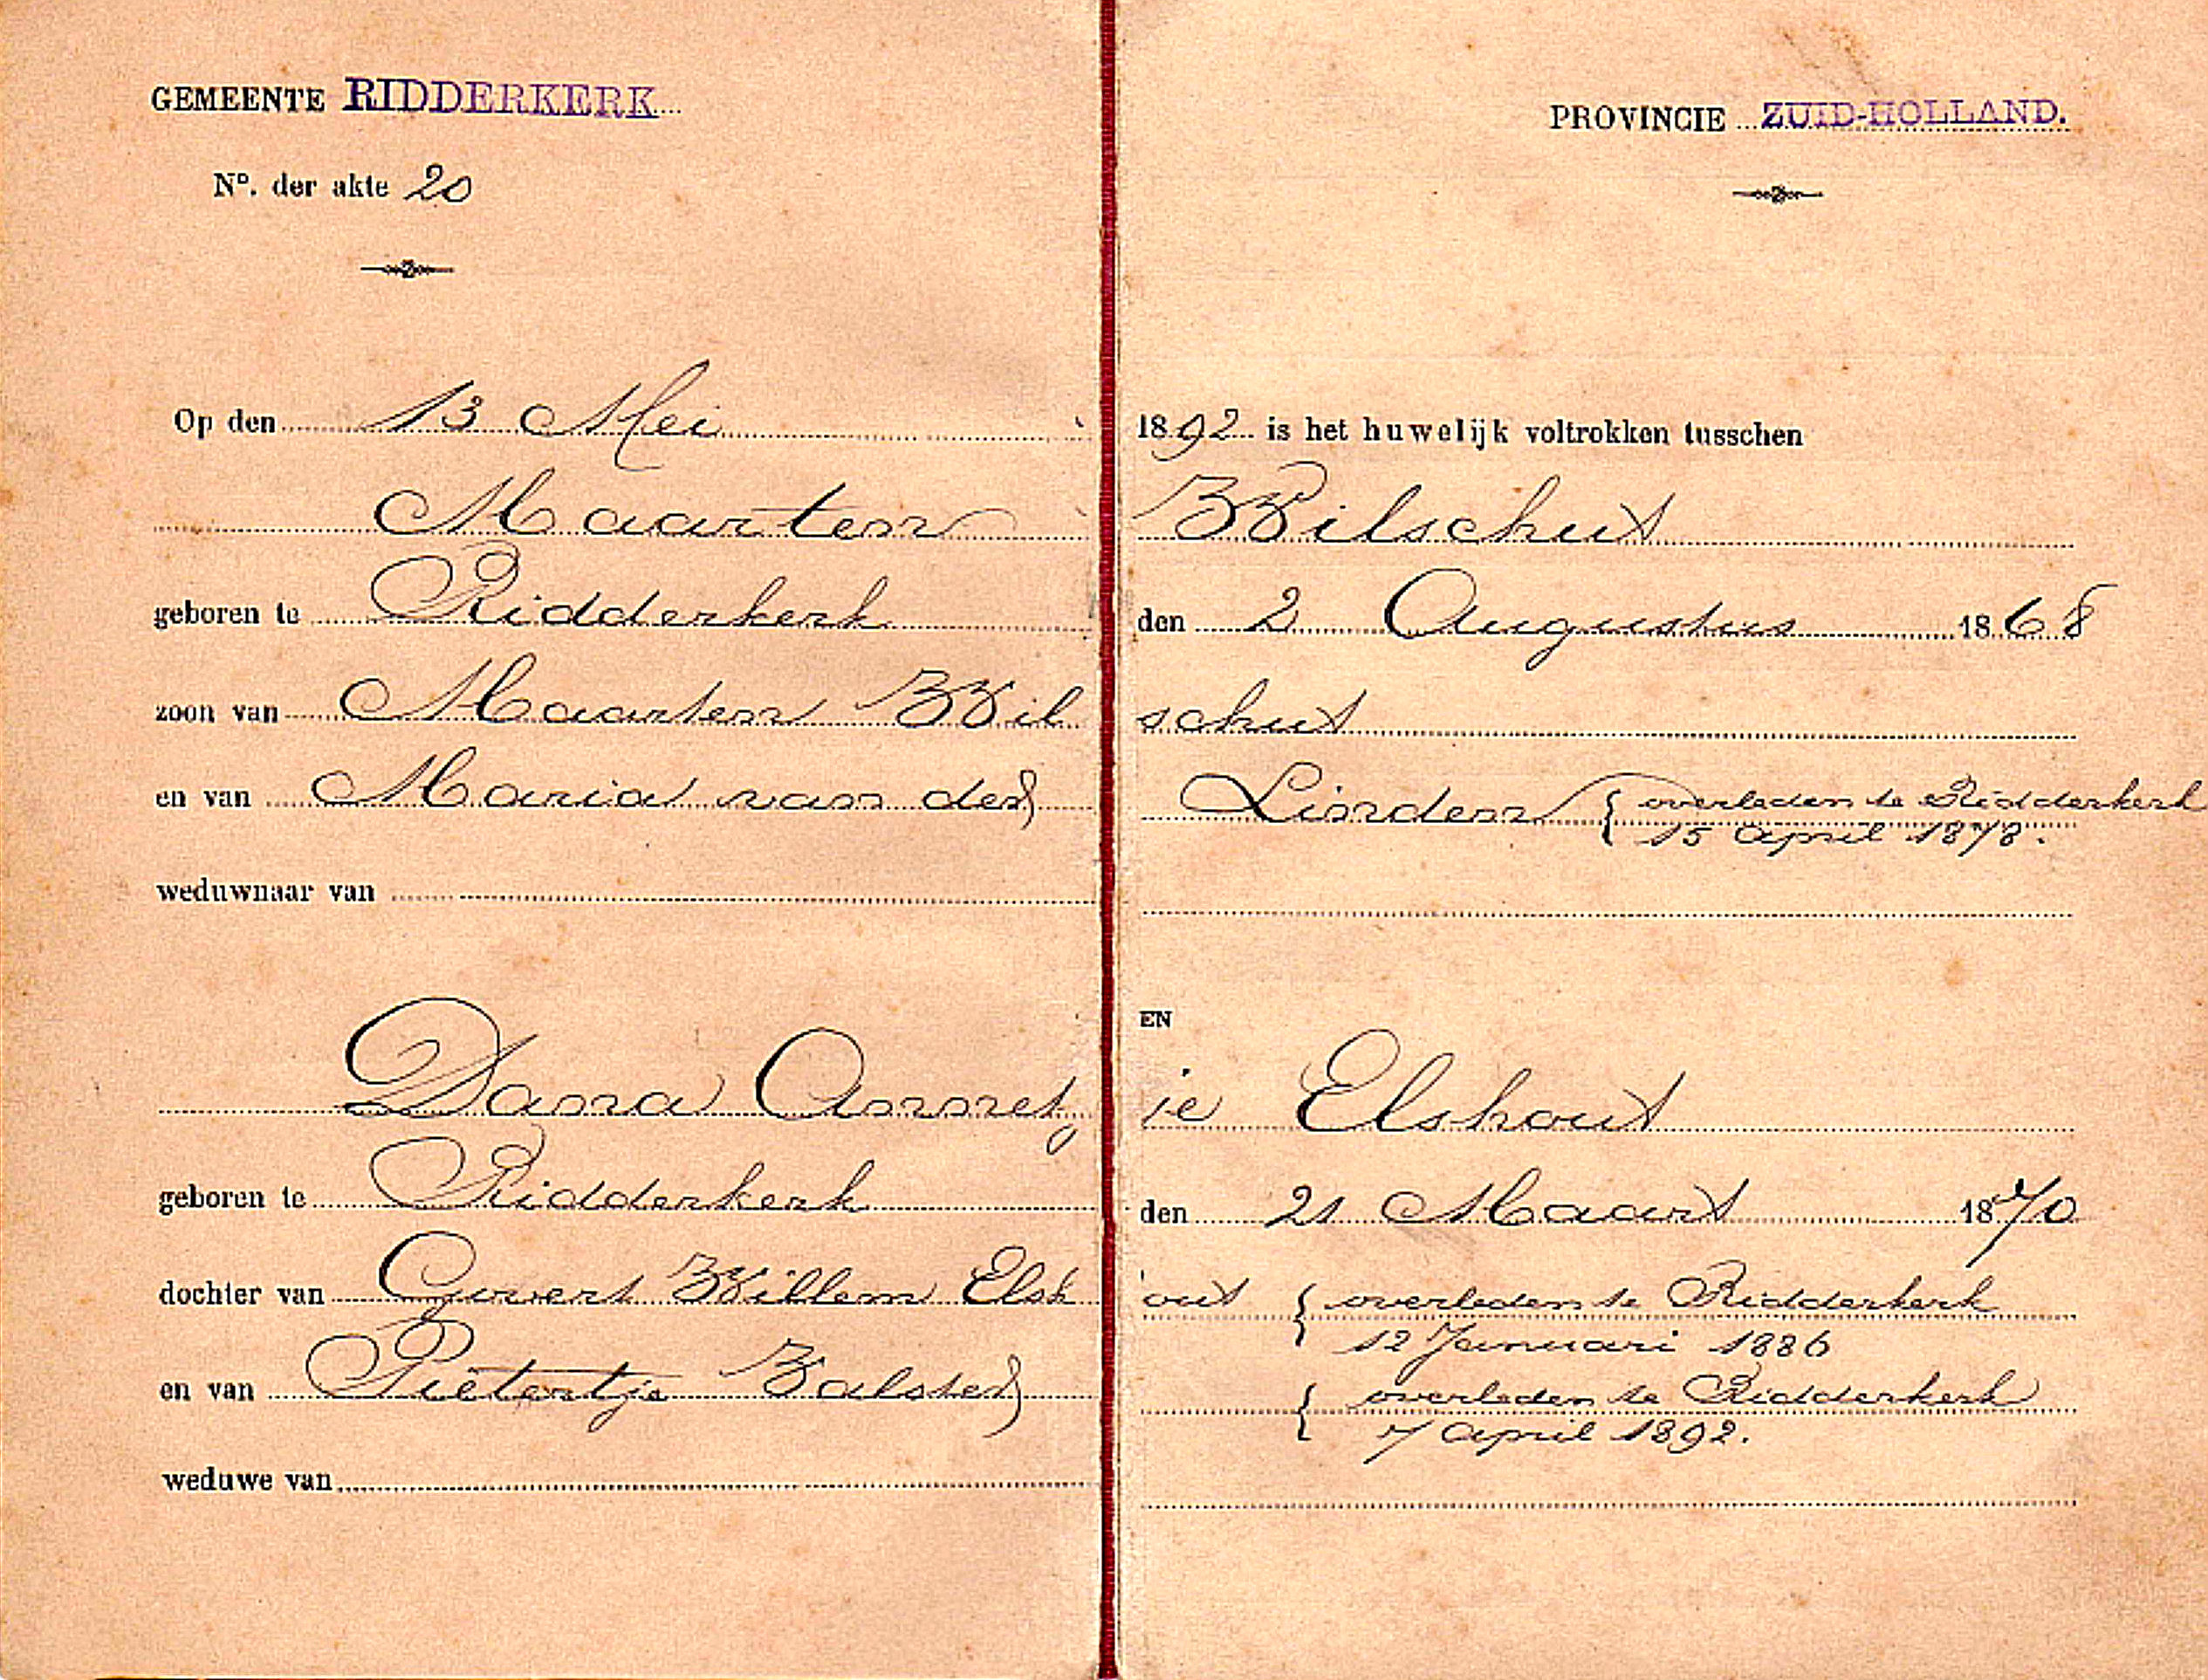 GEMEENTE RIDDERKERK
PROVINCIE ZUID-HOLLAND.
Nº. der akte 20
Op den 13 Mei 1892 is het huwelijk voltrokken tusschen
Maarten Wilschut
geboren te Ridderkerk den 2 Augustus 1868
zoon van Maarten Wilschut
en van Maria van der Linden { overleden te Ridderkerk
15 April 1878.
weduwnaar van
EN
Dana Annetjie Elshout
geboren te Ridderkerk den 21 Maart 1870
dochter van Govert Willem Elshout { overleden te Ridderkerk
12 Januari 1886
en van Pietertje Balster { overleden te Ridderkerk
7 April 1892.
weduwe van